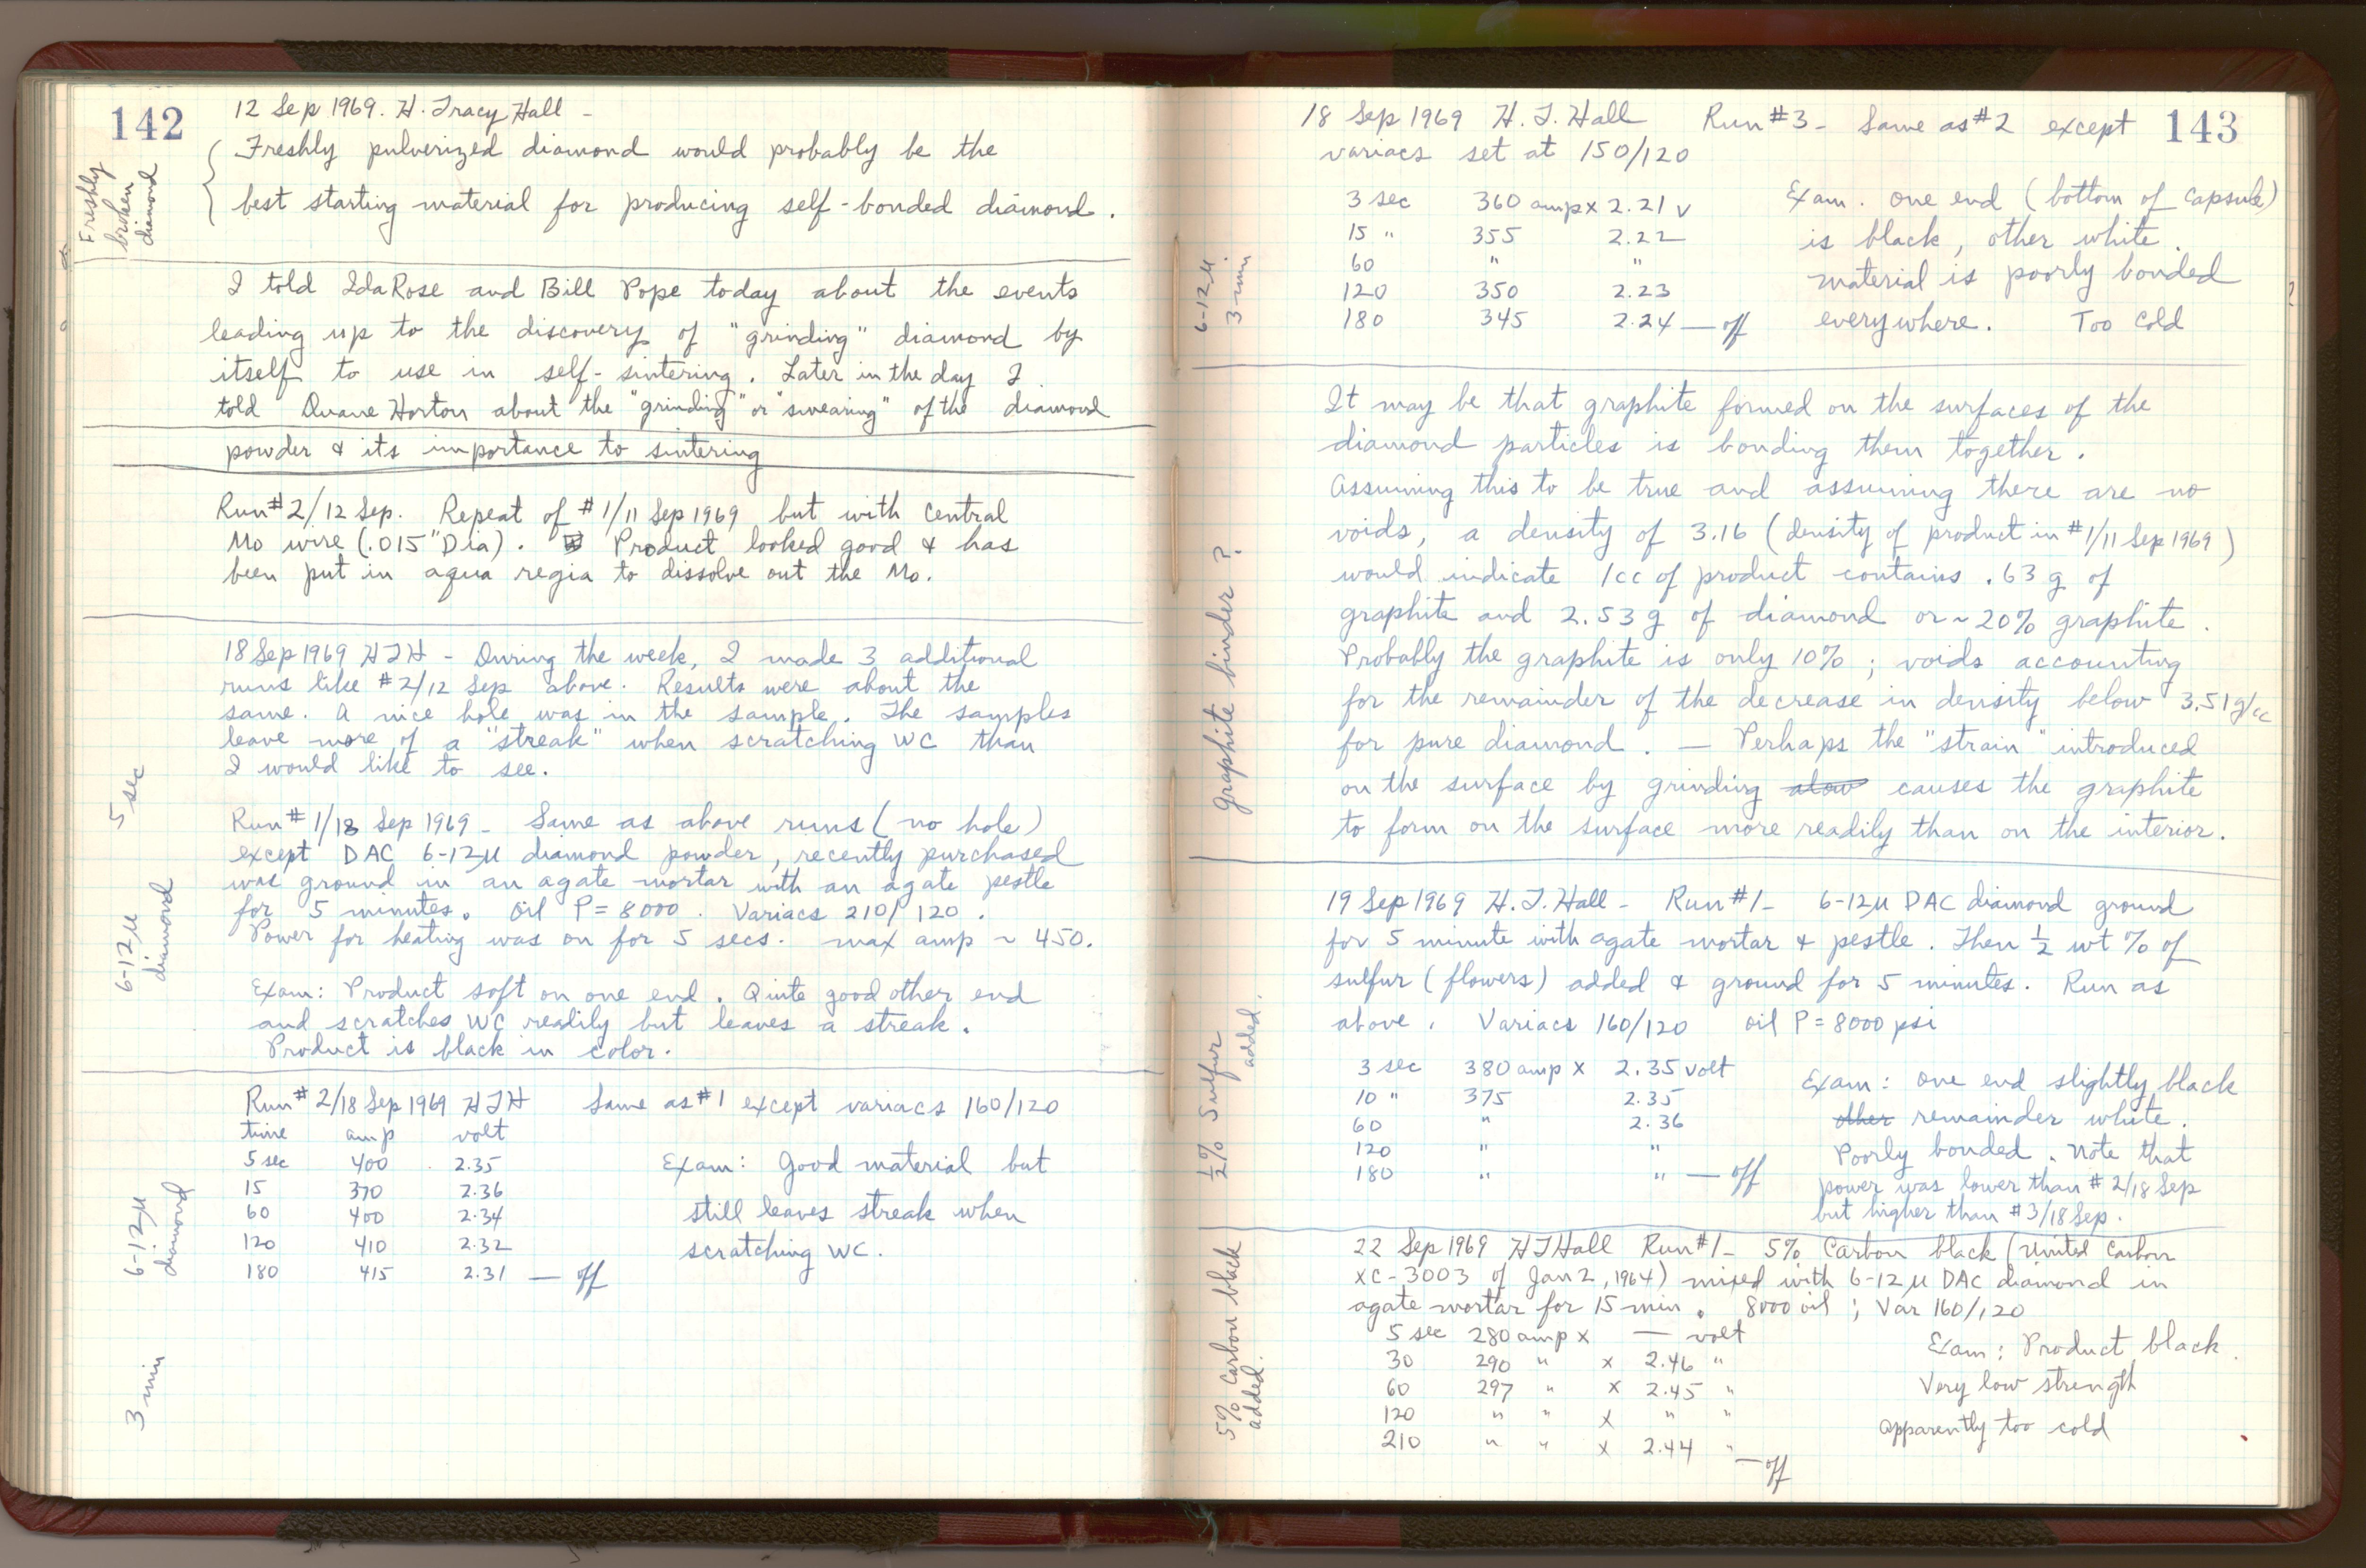 142
12 Sep 1969. H. Tracy Hall -
Freshly pulverized diamond would probably be the
best starting material for producing self-bonded diamond.
Freshly
broken
diamond
I told Ida Rose and Bill Pope today about the events
leading up to the discovery of "grinding" diamond by
itself to use in self-sintering. Later in the day I
told Duane Horton about the "grinding" or "smearing" of the diamond
powder & its importance to sintering
Run #2/12 Sep. Repeat of #1/11 Sep 1969 but with central
Mo wire (.015" Dia). Product looked good & has
been put in aqua regia to dissolve out the Mo.
18 Sep 1969 HTH - During the week, I made 3 additional
runs like #2/12 Sep above. Results were about the
same. A nice hole was in the sample. The samples
leave more of a "streak" when scratching WC than
I would like to see.
5 sec
6-12μ
diamond
Run #1/18 Sep 1969 - Same as above runs (no hole)
except DAC 6-12μ diamond powder, recently purchased
was ground in an agate mortar with an agate pestle
for 5 minutes. Oil P = 8000. Variacs 210/120.
Power for heating was on for 5 secs. max amp ~ 450.
Exam: Product soft on one end. Quite good other end
and scratches WC readily but leaves a streak.
Product is black in color.
6-12μ
diamond
3 min
Run #2/18 Sep 1969 HTH Same as #1 except variacs 160/120
time amp volt
5 sec 400 2.35
15 370 2.36
60 400 2.34
120 410 2.32
180 415 2.31 — off
Exam: Good material but
still leaves streak when
scratching WC.
143
18 Sep 1969 H. T. Hall Run #3 - Same as #2 except
variacs set at 150/120
6-12μ
3 min
3 sec 360 amp x 2.21 v
15 " 355 2.22
60 " "
120 350 2.23
180 345 2.24 — off
Exam. One end (bottom of capsule)
is black, other white.
Material is poorly bonded
everywhere. Too cold
graphite binder?
It may be that graphite formed on the surfaces of the
diamond particles is bonding them together.
Assuming this to be true and assuming there are no
voids, a density of 3.16 (density of product in #1/11 Sep 1969)
would indicate 1cc of product contains .63 g of
graphite and 2.53 g of diamond or ~20% graphite.
Probably the graphite is only 10%; voids accounting
for the remainder of the decrease in density below 3.51 g/cc
for pure diamond. — Perhaps the "strain" introduced
on the surface by grinding causes the graphite
to form on the surface more readily than on the interior.
½% Sulfur
added.
19 Sep 1969 H. T. Hall - Run #1 - 6-12μ DAC diamond ground
for 5 minute with agate mortar & pestle. Then ½ wt % of
sulfur (flowers) added & ground for 5 minutes. Run as
above. Variacs 160/120 oil P = 8000 psi
3 sec 380 amp x 2.35 volt
10 " 375 2.35
60 " 2.36
120 " "
180 " " — off
Exam: One end slightly black
other remainder white.
Poorly bonded. Note that
power was lower than #2/18 Sep
but higher than #3/18 Sep.
5% Carbon black
added.
22 Sep 1969 HTHall Run #1 - 5% Carbon black (United Carbon
XC-3003 of Jan 2, 1964) mixed with 6-12μ DAC diamond in
agate mortar for 15 min. 8000 oil; Var 160/120
5 sec 280 amp x — volt
30 290 " x 2.46 "
60 297 " x 2.45 "
120 " " x " "
210 " " x 2.44 "
— off
Exam: Product black.
Very low strength
apparently too cold